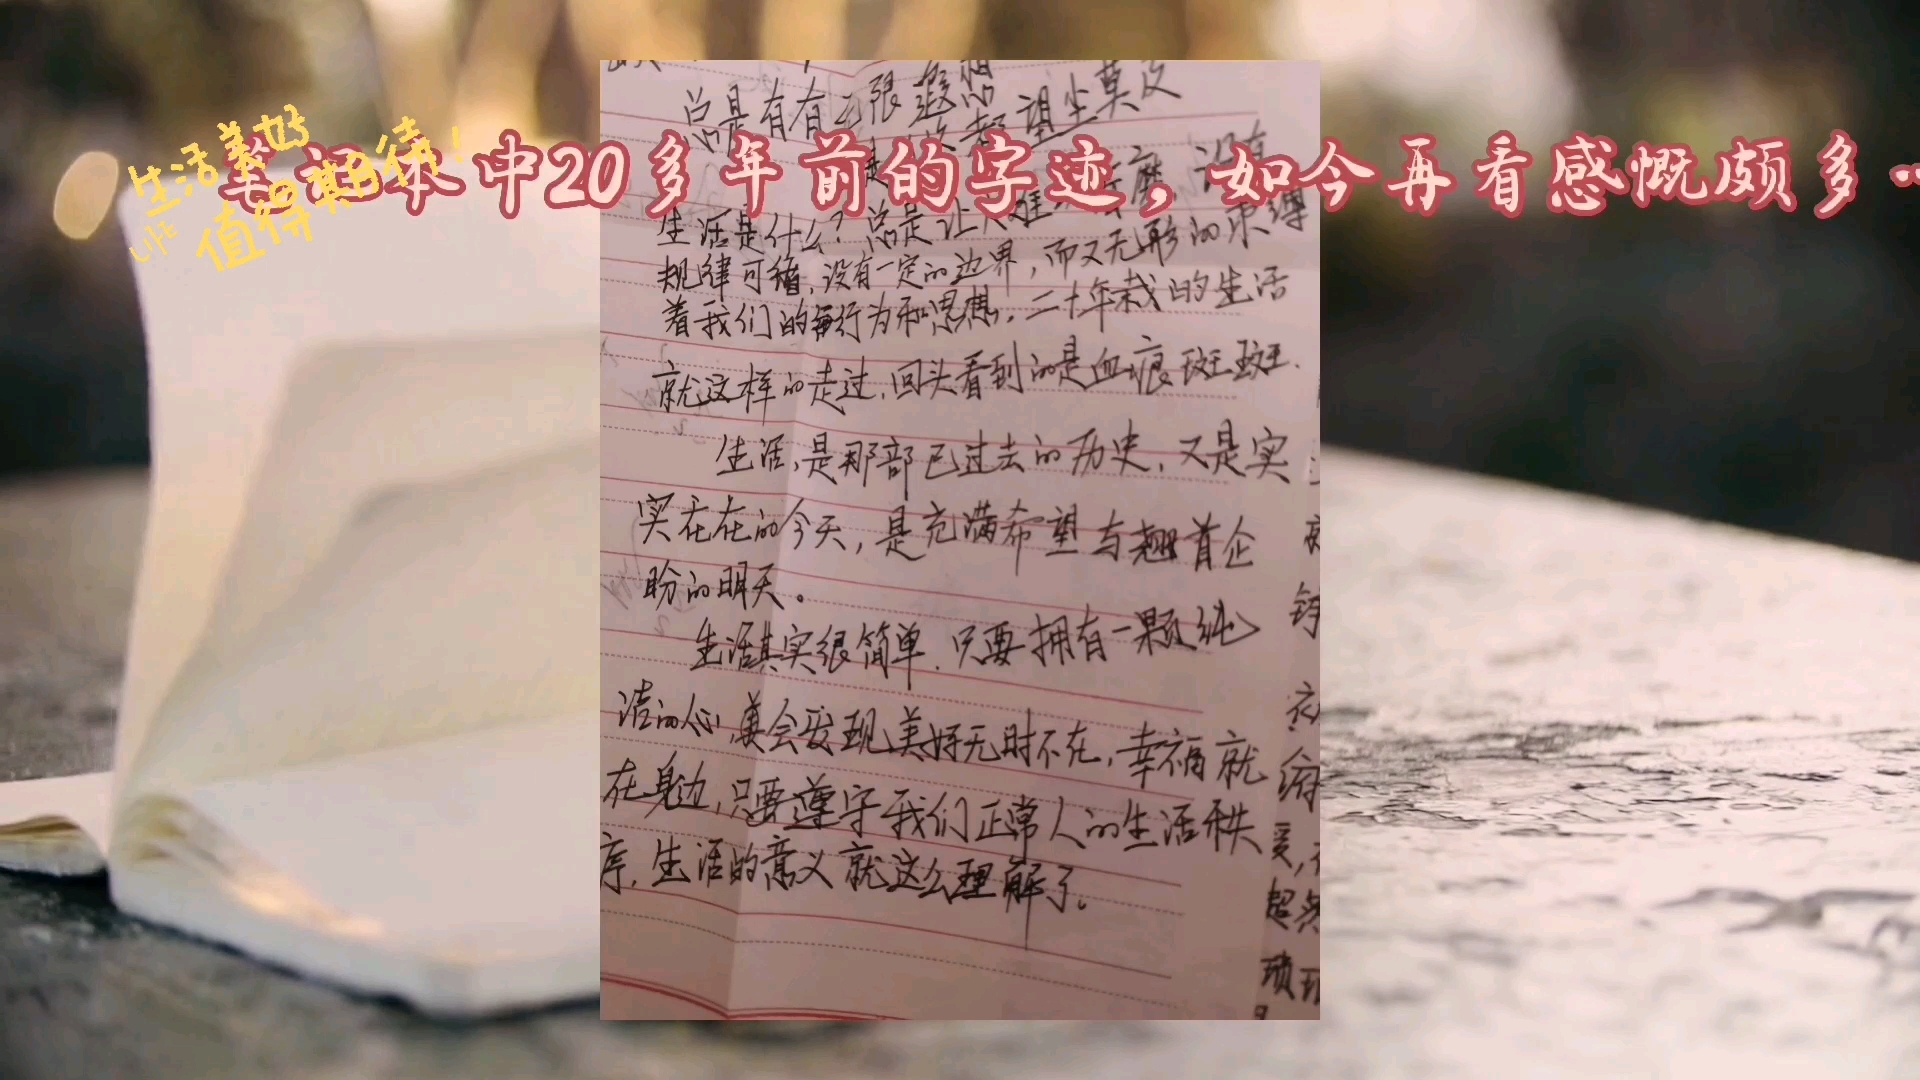 生活美好
值得期待！
笔记本中20多年前的字迹，如今再看感慨颇多…
总是有有无限遐想
望尘莫及
生活是什么？总是让人难 磨，没有
规律可循，没有一定的边界，而又无形的束缚
着我们的每行为和思想。二十年栽的生活
就这样的走过，回头看到的是血痕斑斑．
生活，是那部已过去的历史，又是实
实在在的今天，是充满希望与翘首企
盼的明天。
生活其实很简单．只要拥有一颗纯
洁的心，会发现美好无时不在，幸福就
在身边，只要遵守我们正常人的生活秩
序．生活的意义就这么理解了。